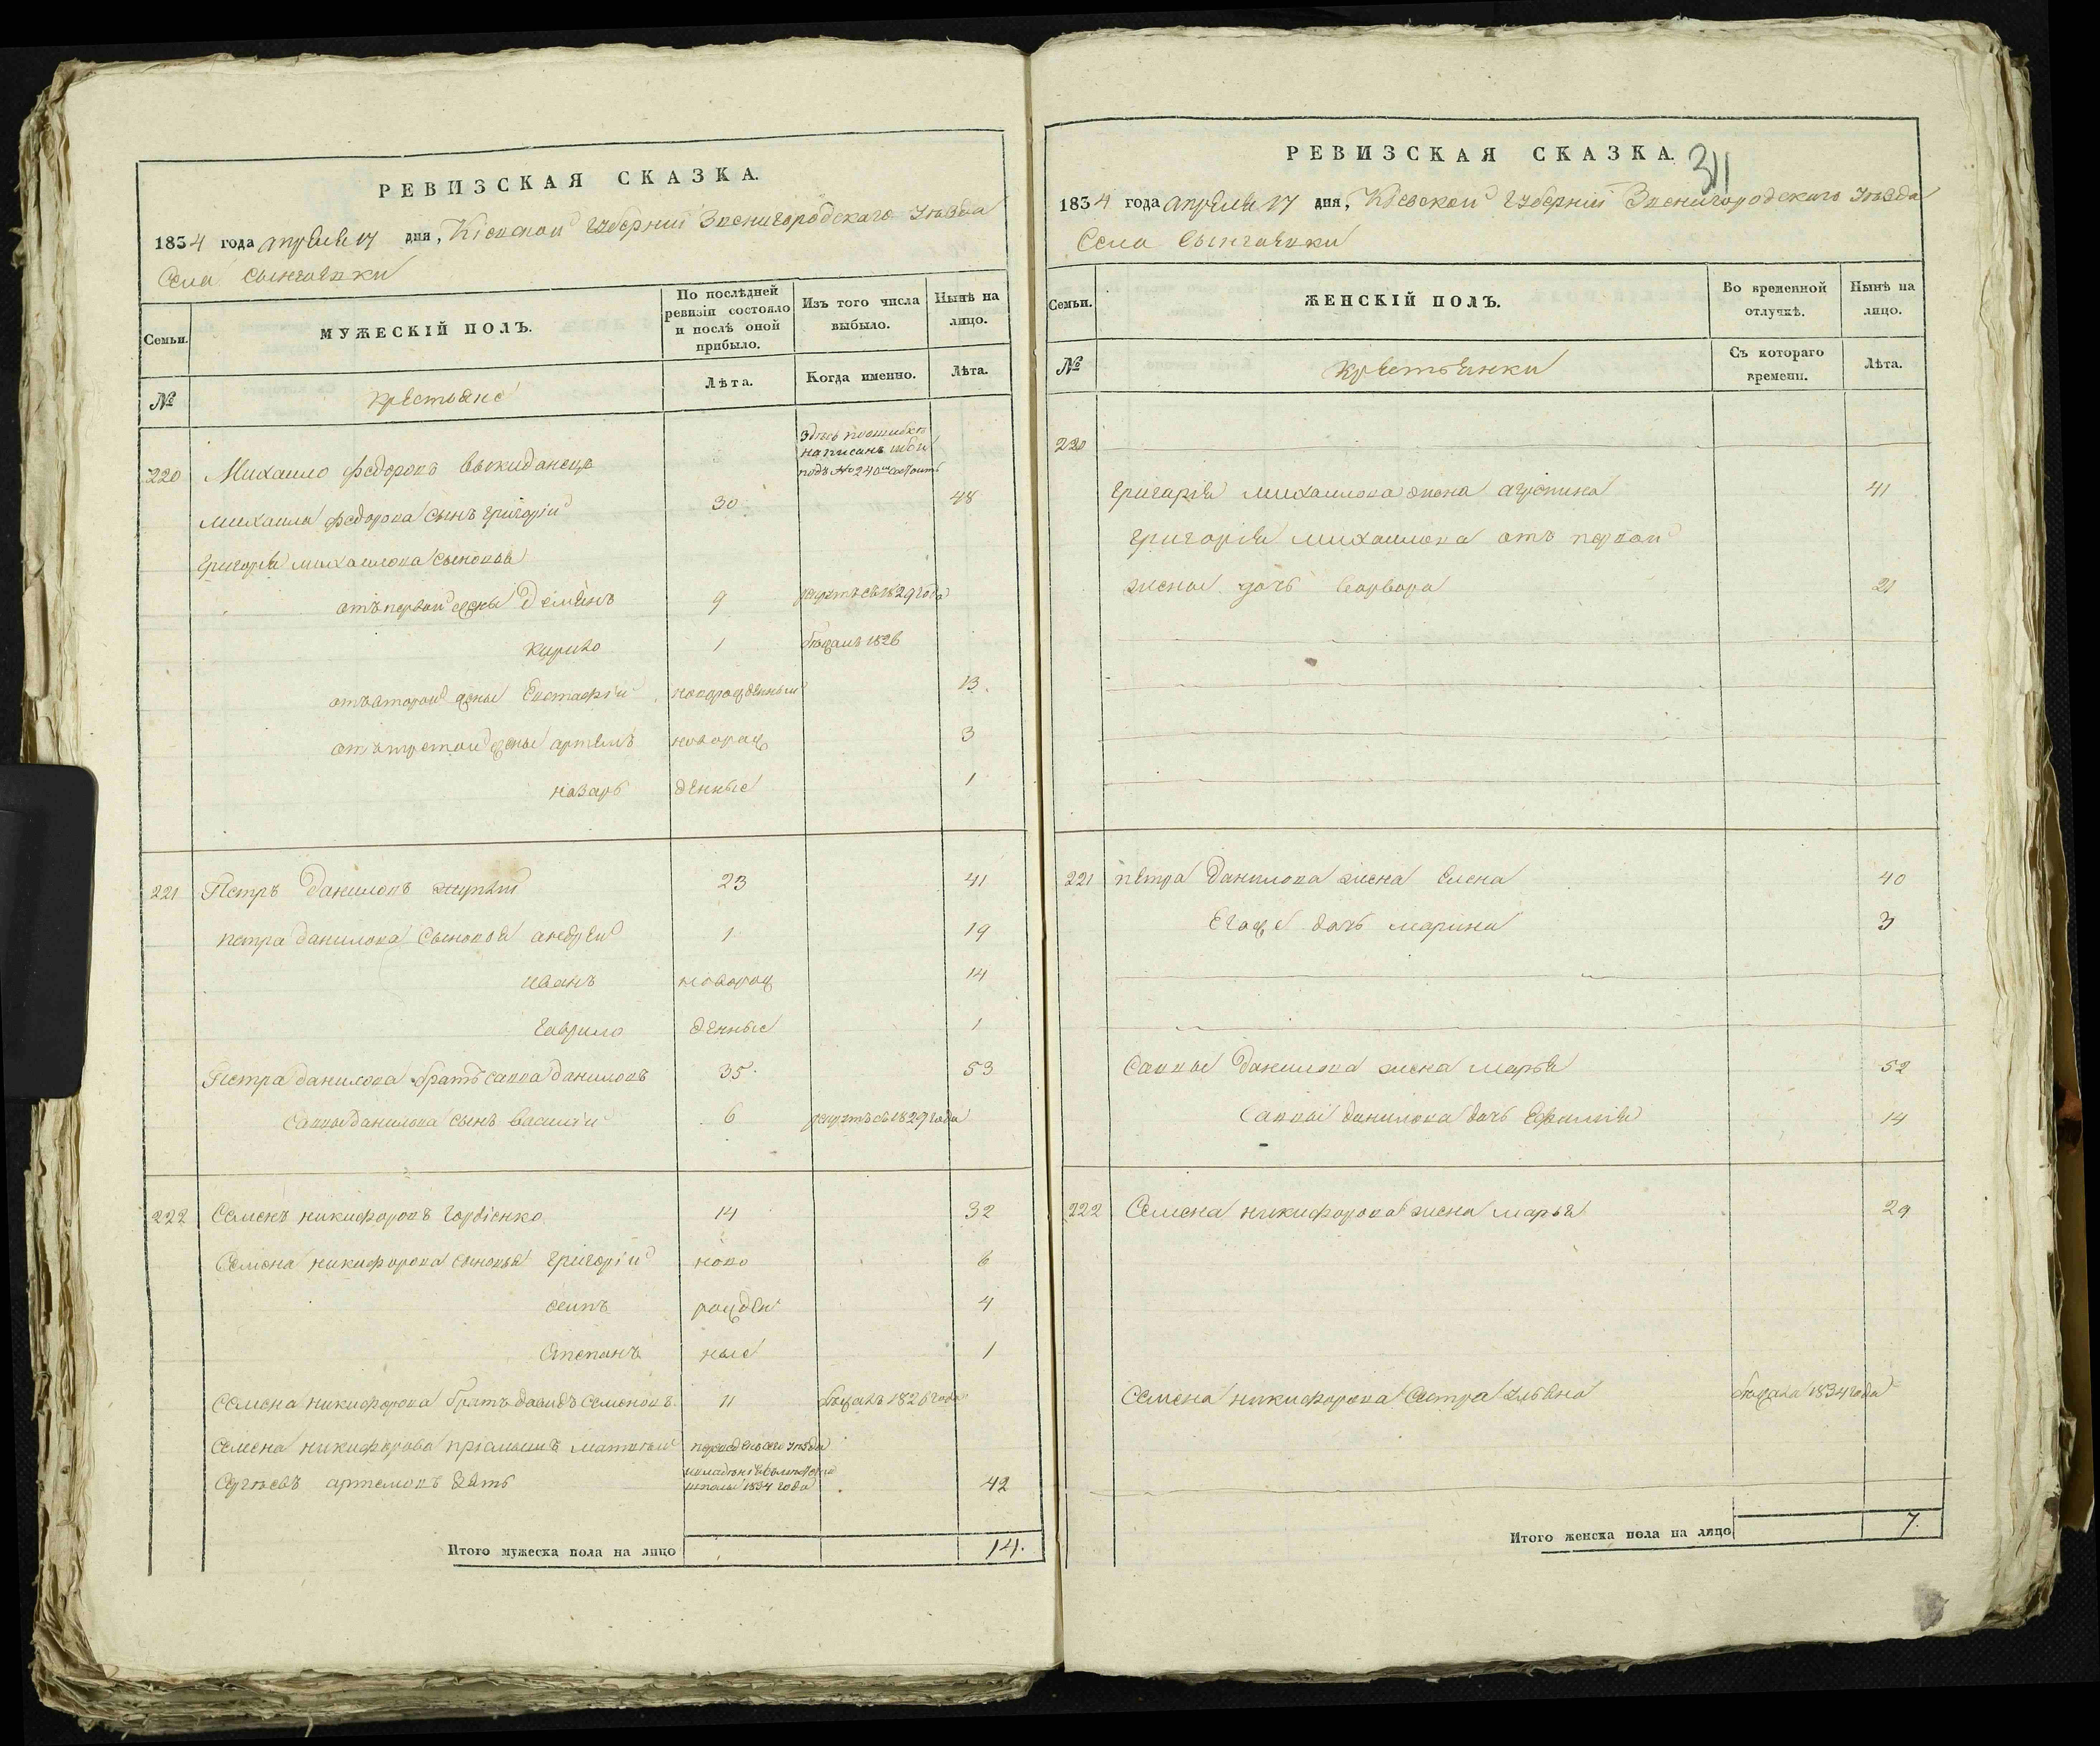 РЕВИЗСКАЯ СКАЗКА.
1834 года апреля 17 дня, Кіевской Губерніи Звенигородскаго Уезда
Села
Семьи. МУЖЕСКІЙ ПОЛЪ. По послѣдней ревизіи состояло и послѣ оной прибыло. Изъ того числа выбыло. Нынѣ на лицо.
№ крестьяне Лѣта. Когда именно. Лѣта.
здесь поошибке
написанъ ибо
подъ № 240м состоитъ
220 Михаило Федоровъ выкиданецъ
Михаила федорова сынъ григорій 30 48
григорія михаилова сыновья
отъ первой жены Демянъ 9 рекрутъ съ 1829 года
Кирило 1 бежалъ 1826
отъ второй жены Евстафій новорожденный 13.
отъ третой жены артемъ новорож 3
назаръ денные 1
221 Петръ Даниловъ 23 41
петра данилова сыновья андрей 1 19
иванъ новорож 14
гаврило денные 1
Петра данилова братъ савва даниловъ 35. 53
Саввы данилова сынъ василій 6 рекрутъ съ 1829 года
222 Семенъ никифоровъ гордіенко 14 32
Семена никифорова сыновья григорій ново 6
осипъ рожден 4
Степанъ ные 1
Семена никифорова братъ давидъ семеновъ 11 бежалъ 1826 года
Семена никифорова пріймышъ матвей
Сергеевъ артемовъ зять 1834 года 42
Итого мужеска пола на лицо 14.
РЕВИЗСКАЯ СКАЗКА. 311
1834 года апреля 17 дня, Кіевской Губерніи Звенигородскаго Уезда
Села
Семьи. ЖЕНСКІЙ ПОЛЪ. Во временной отлучкѣ. Нынѣ на лицо.
№ крестьянки Съ котораго времени. Лѣта.
220
григорія михаилова жена агрепина 41
григорія михаилова отъ первой
жены дочь варвара 21
221 петра данилова жена елена 40
Егоже дочь марина 3
Саввы Данилова жена марья 52
Саввы данилова дочь Ефимія 14
222 Семена никифорова жена марья 29
Семена никифорова сестра ульяна бежала 1834 года
Итого женска пола на лицо 7.